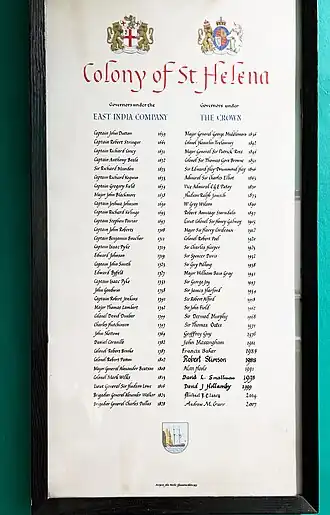 Colony of St Helena
Governors under the
EAST INDIA COMPANY
Captain John Dutton 1659
Captain Robert Stringer 1661
Captain Richard Coney 1671
Captain Anthony Beale 1672
Sir Richard Munden 1673
Captain Richard Keigwin 1673
Captain Gregory Field 1674
Major John Blackmore 1678
Captain Joshua Johnson 1690
Captain Richard Kelinge 1693
Captain Stephen Poirier 1697
Captain John Roberts 1708
Captain Benjamin Boucher 1711
Captain Isaac Pyke 1714
Edward Johnson 1719
Captain John Smith 1723
Edward Byfeld 1727
Captain Isaac Pyke 1731
John Goodwin 1738
Captain Robert Jenkins 1741
Major Thomas Lambert 1742
Colonel David Dunbar
Charles Hutchinson
John Skottowe 1764
Daniel Corneille 1782
Colonel Robert Brooke 1787
Colonel Robert Patton 1802
Major General Alexander Beatson 1808
Colonel Mark Wilks 1813
Lieut General Sir Hudson Lowe 1816
Brigadier General Alexander Walker 1823
Brigadier General Charles Dallas 1828
Governors under
THE CROWN
Major General George Middlemore 1836
Colonel Hamelin Trelawney 1842
Major General Sir Patrick Ross 1846
Colonel Sir Thomas Gore Browne 1851
Sir Edward Hay Drummond Hay 1856
Admiral Sir Charles Elliot 1863
Vice Admiral C G E Patey 1870
Hudson Ralph Janisch 1873
W Grey Wilson 1890
Robert Armitage Sterndale 1897
Lieut Colonel Sir Henry Galwey 1903
Major Sir Harry Cordeaux 1912
Colonel Robert Peel 1920
Sir Charles Harper 1925
Sir Spencer Davis 1932
Sir Guy Pilling 1938
Major William Bain Gray 1941
Sir George Joy 1947
Sir James Harford 1954
Sir Robert Alford 1958
Sir John Field 1962
Sir Dermod Murphy 1968
Sir Thomas Oates 1971
Geoffrey Guy 1976
John Massingham 1981
Francis Baker 1984
Robert Stimson 1988
Alan Hoole 1991
David L Smallman 1995
David J Hollamby 1999
Michael J Clancy 2004
Andrew M Gurr 2007